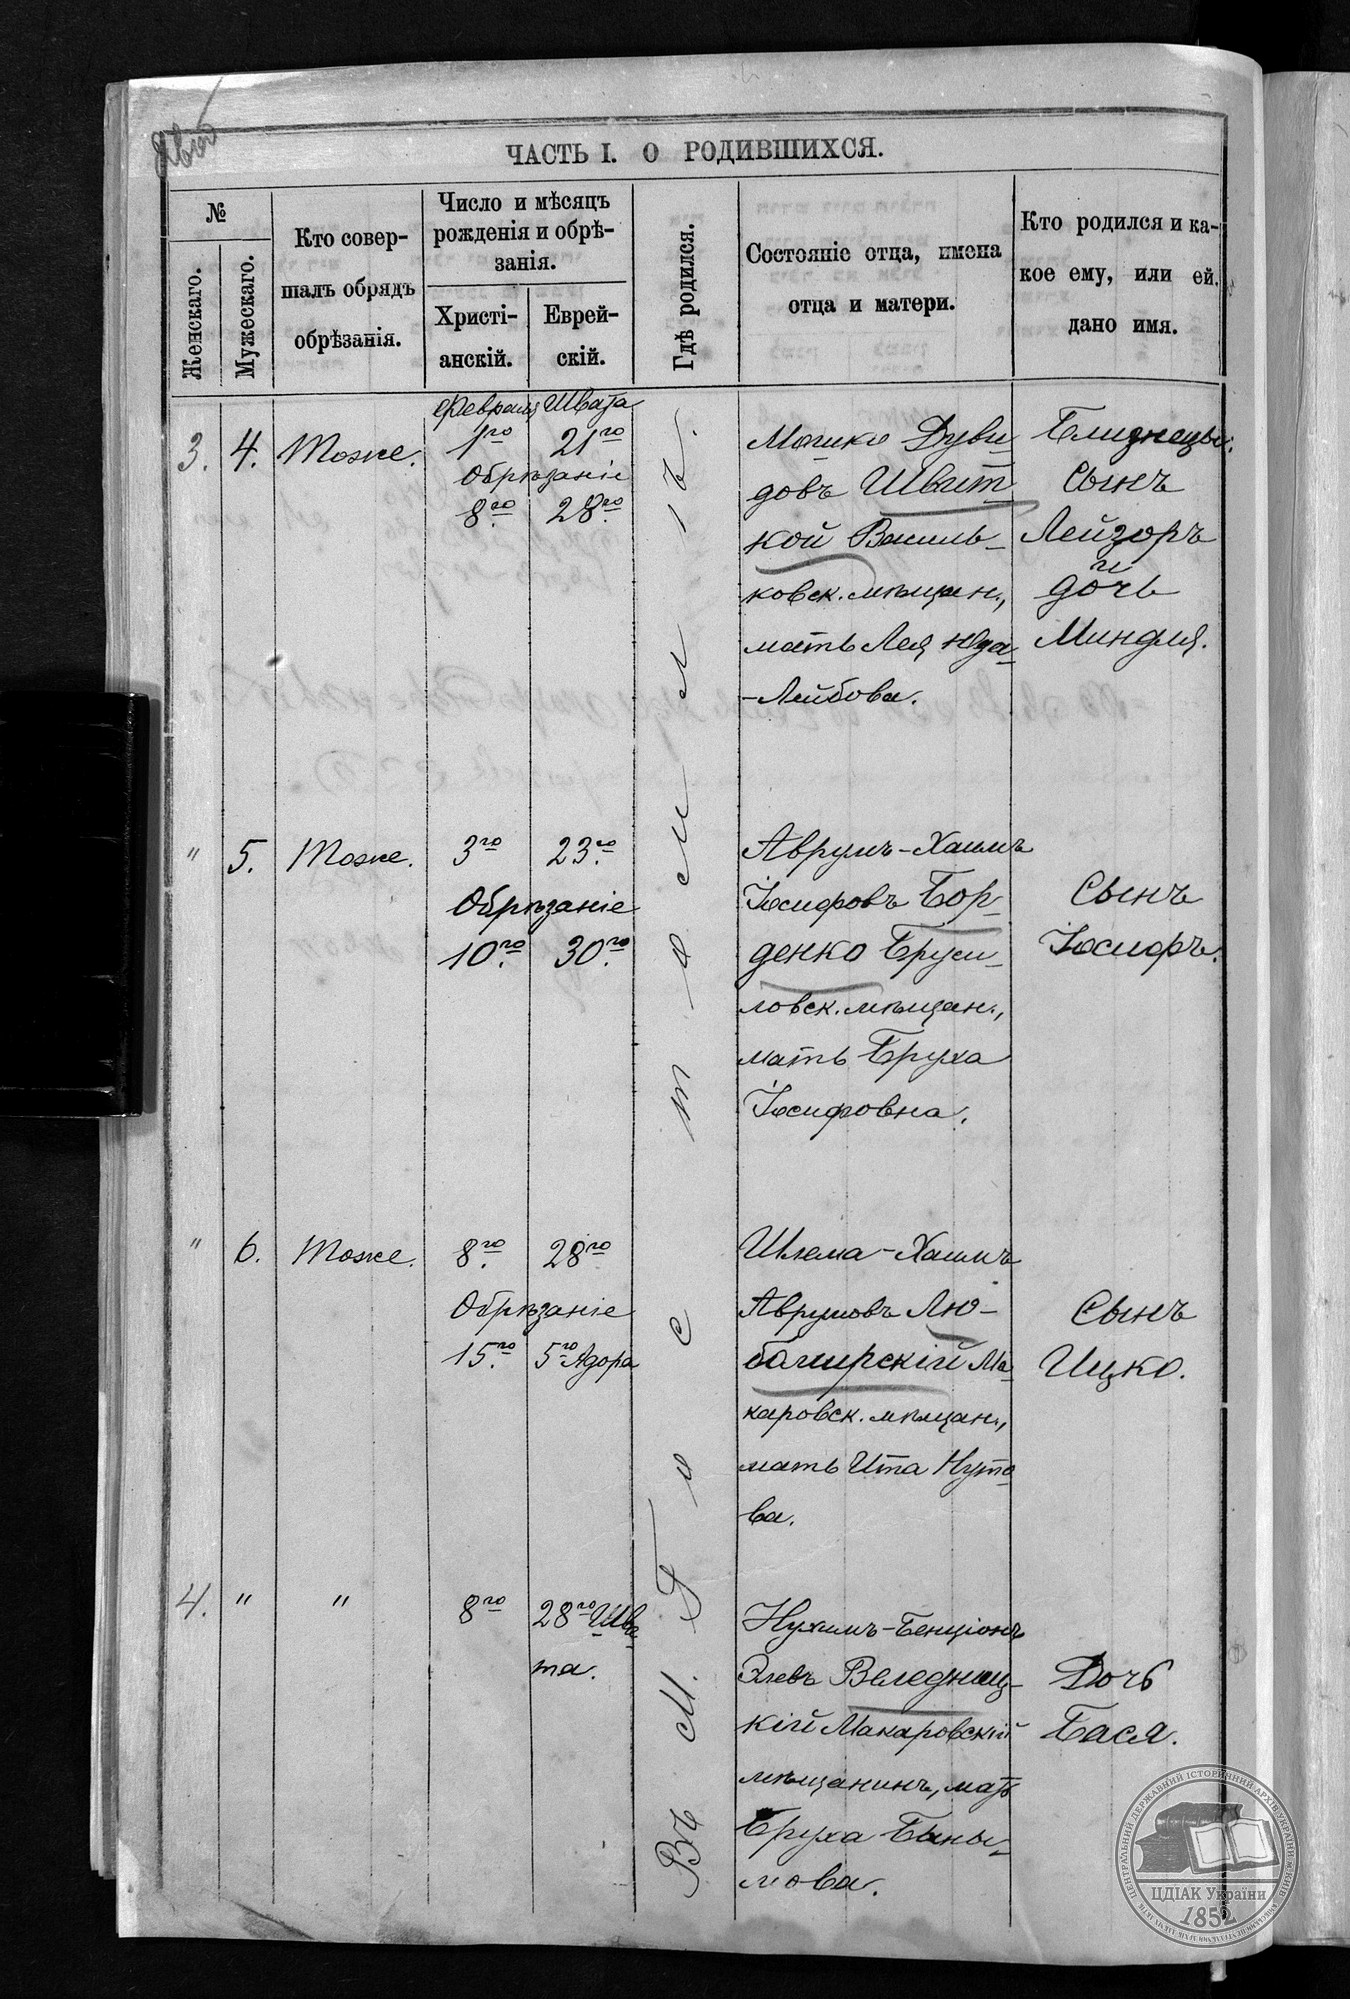 ЧАСТЬ I. О РОДИВШИХСЯ.
№
Женскаго.
Мужескаго.
Кто совер-
шалъ обрядъ
обрѣзанія.
Число и мѣсяцъ
рожденія и обрѣ-
занія.
Христі-
анскій.
Еврей-
скій.
Гдѣ родился.
Состояніе отца, имена
отца и матери.
Кто родился и ка-
кое ему, или ей,
дано имя.
Въ М. Гостомелѣ.
Февраля Швата
3. 4. Тоже. 1го 21го
Обрѣзаніе
8го 28го
Мошко Дуви-
довъ Швит-
кой Василь-
ковск. мѣщан.,
мать Лея Юда-
-Лейбова.
Близнецы:
Сынъ
Лейзоръ
и
дочь
Миндля.
" 5. Тоже. 3го 23го
Обрѣзаніе
10го 30го
Аврумъ-Хаимъ
Іосифовъ Бор-
денко Бруси-
ловск. мѣщан.,
мать Бруха
Іосифовна.
Сынъ
Іосифъ.
" 6. Тоже. 8го 28го
Обрѣзаніе
15го 5го Адора
Шлема-Хаимъ
Аврумовъ Лю-
бомирскій Ма-
каровск. мѣщан.,
мать Ита Нуто-
ва.
Сынъ
Ицко.
4. " " 8го 28го Шва-
та.
Нухимъ-Бенціонъ
Элевъ Веледниц-
кій Макаровскій
мѣщанинъ, мать
Бруха Быны-
мова.
Дочь
Бася.
ЦЕНТРАЛЬНИЙ ДЕРЖАВНИЙ ІСТОРИЧНИЙ АРХІВ УКРАЇНИ м. КИЇВ
ЦДІАК України
1852